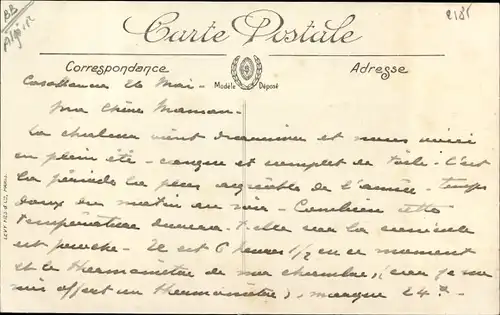 BB
Algier
2185
Carte Postale
Correspondance
Modèle Déposé
Adresse
Casablanca 26 Mai -
Ma chère Maman -
La chaleur vient d'arriver et nous voici
en plein été - casque et complet de toile : C'est
la période la plus agréable de l'année - temps
doux du matin au soir - Combien cette
température durera-t-elle car la canicule
est proche - Il est 6 heures 1/2 en ce moment
et le thermomètre de ma chambre, (car je me
suis offert un thermomètre), marque 24°.
LEVY FILS & CIE, PARIS